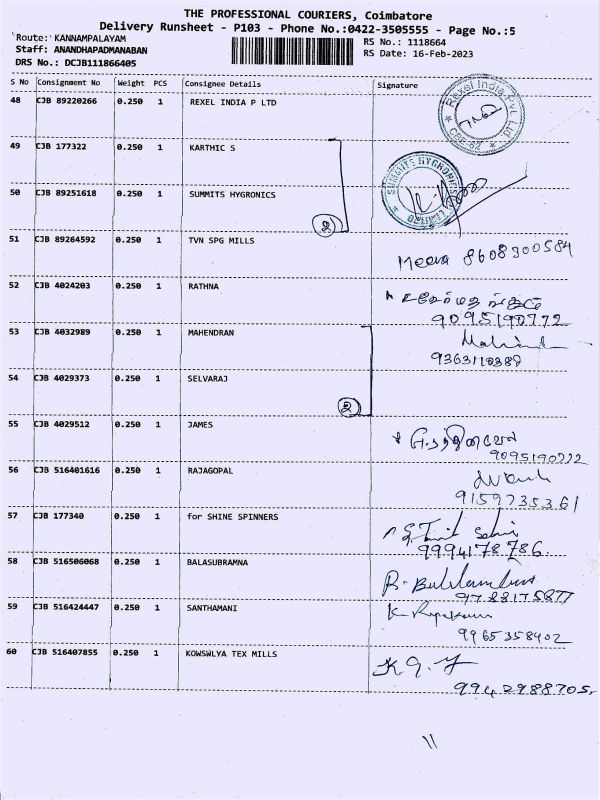 THE PROFESSIONAL COURIERS, Coimbatore
Delivery Runsheet - P103 - Phone No.:0422-3505555 - Page No.:5
Route: KANNAMPALAYAM
RS No.: 1118664
Staff: ANANDHAPADMANABAN
RS Date: 16-Feb-2023
DRS No.: DCJB111866405
S No Consignment No Weight PCS Consignee Details Signature
48 CJB 89220266 0.250 1 REXEL INDIA P LTD Rexel India Pvt Ltd
49 CJB 177322 0.250 1 KARTHIC S
50 CJB 89251618 0.250 1 SUMMITS HYGRONICS SUMMITS HYGRONICS
2
51 CJB 89264592 0.250 1 TVN SPG MILLS Meera 8608300584
52 CJB 4024203 0.250 1 RATHNA
9095190772
53 CJB 4032989 0.250 1 MAHENDRAN
9363110389
54 CJB 4029373 0.250 1 SELVARAJ
2
55 CJB 4029512 0.250 1 JAMES
9095190772
56 CJB 516401616 0.250 1 RAJAGOPAL
9159735361
57 CJB 177340 0.250 1 for SHINE SPINNERS
9994178786
58 CJB 516506068 0.250 1 BALASUBRAMNA
9788175877
59 CJB 516424447 0.250 1 SANTHAMANI
9965358402
60 CJB 516407855 0.250 1 KOWSWLYA TEX MILLS
9942988705